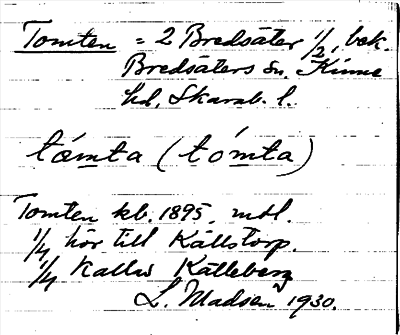 Tomten = 2 Bredsäter 1/2, bek.
Bredsäters sn. Kinne
hd. Skarab. l.
tómta (tómta)
Tomten kb. 1895, mtl.
1/4 hör till Källstorp.
1/4 kallas Källeberg
L. Madsen 1930.